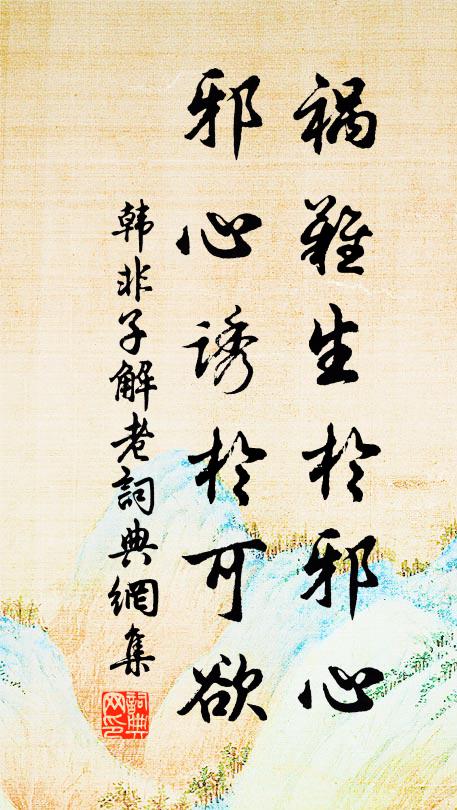 祸难生於邪心
邪心诱於可欲
韩非子解老詞典網集
詞典网印